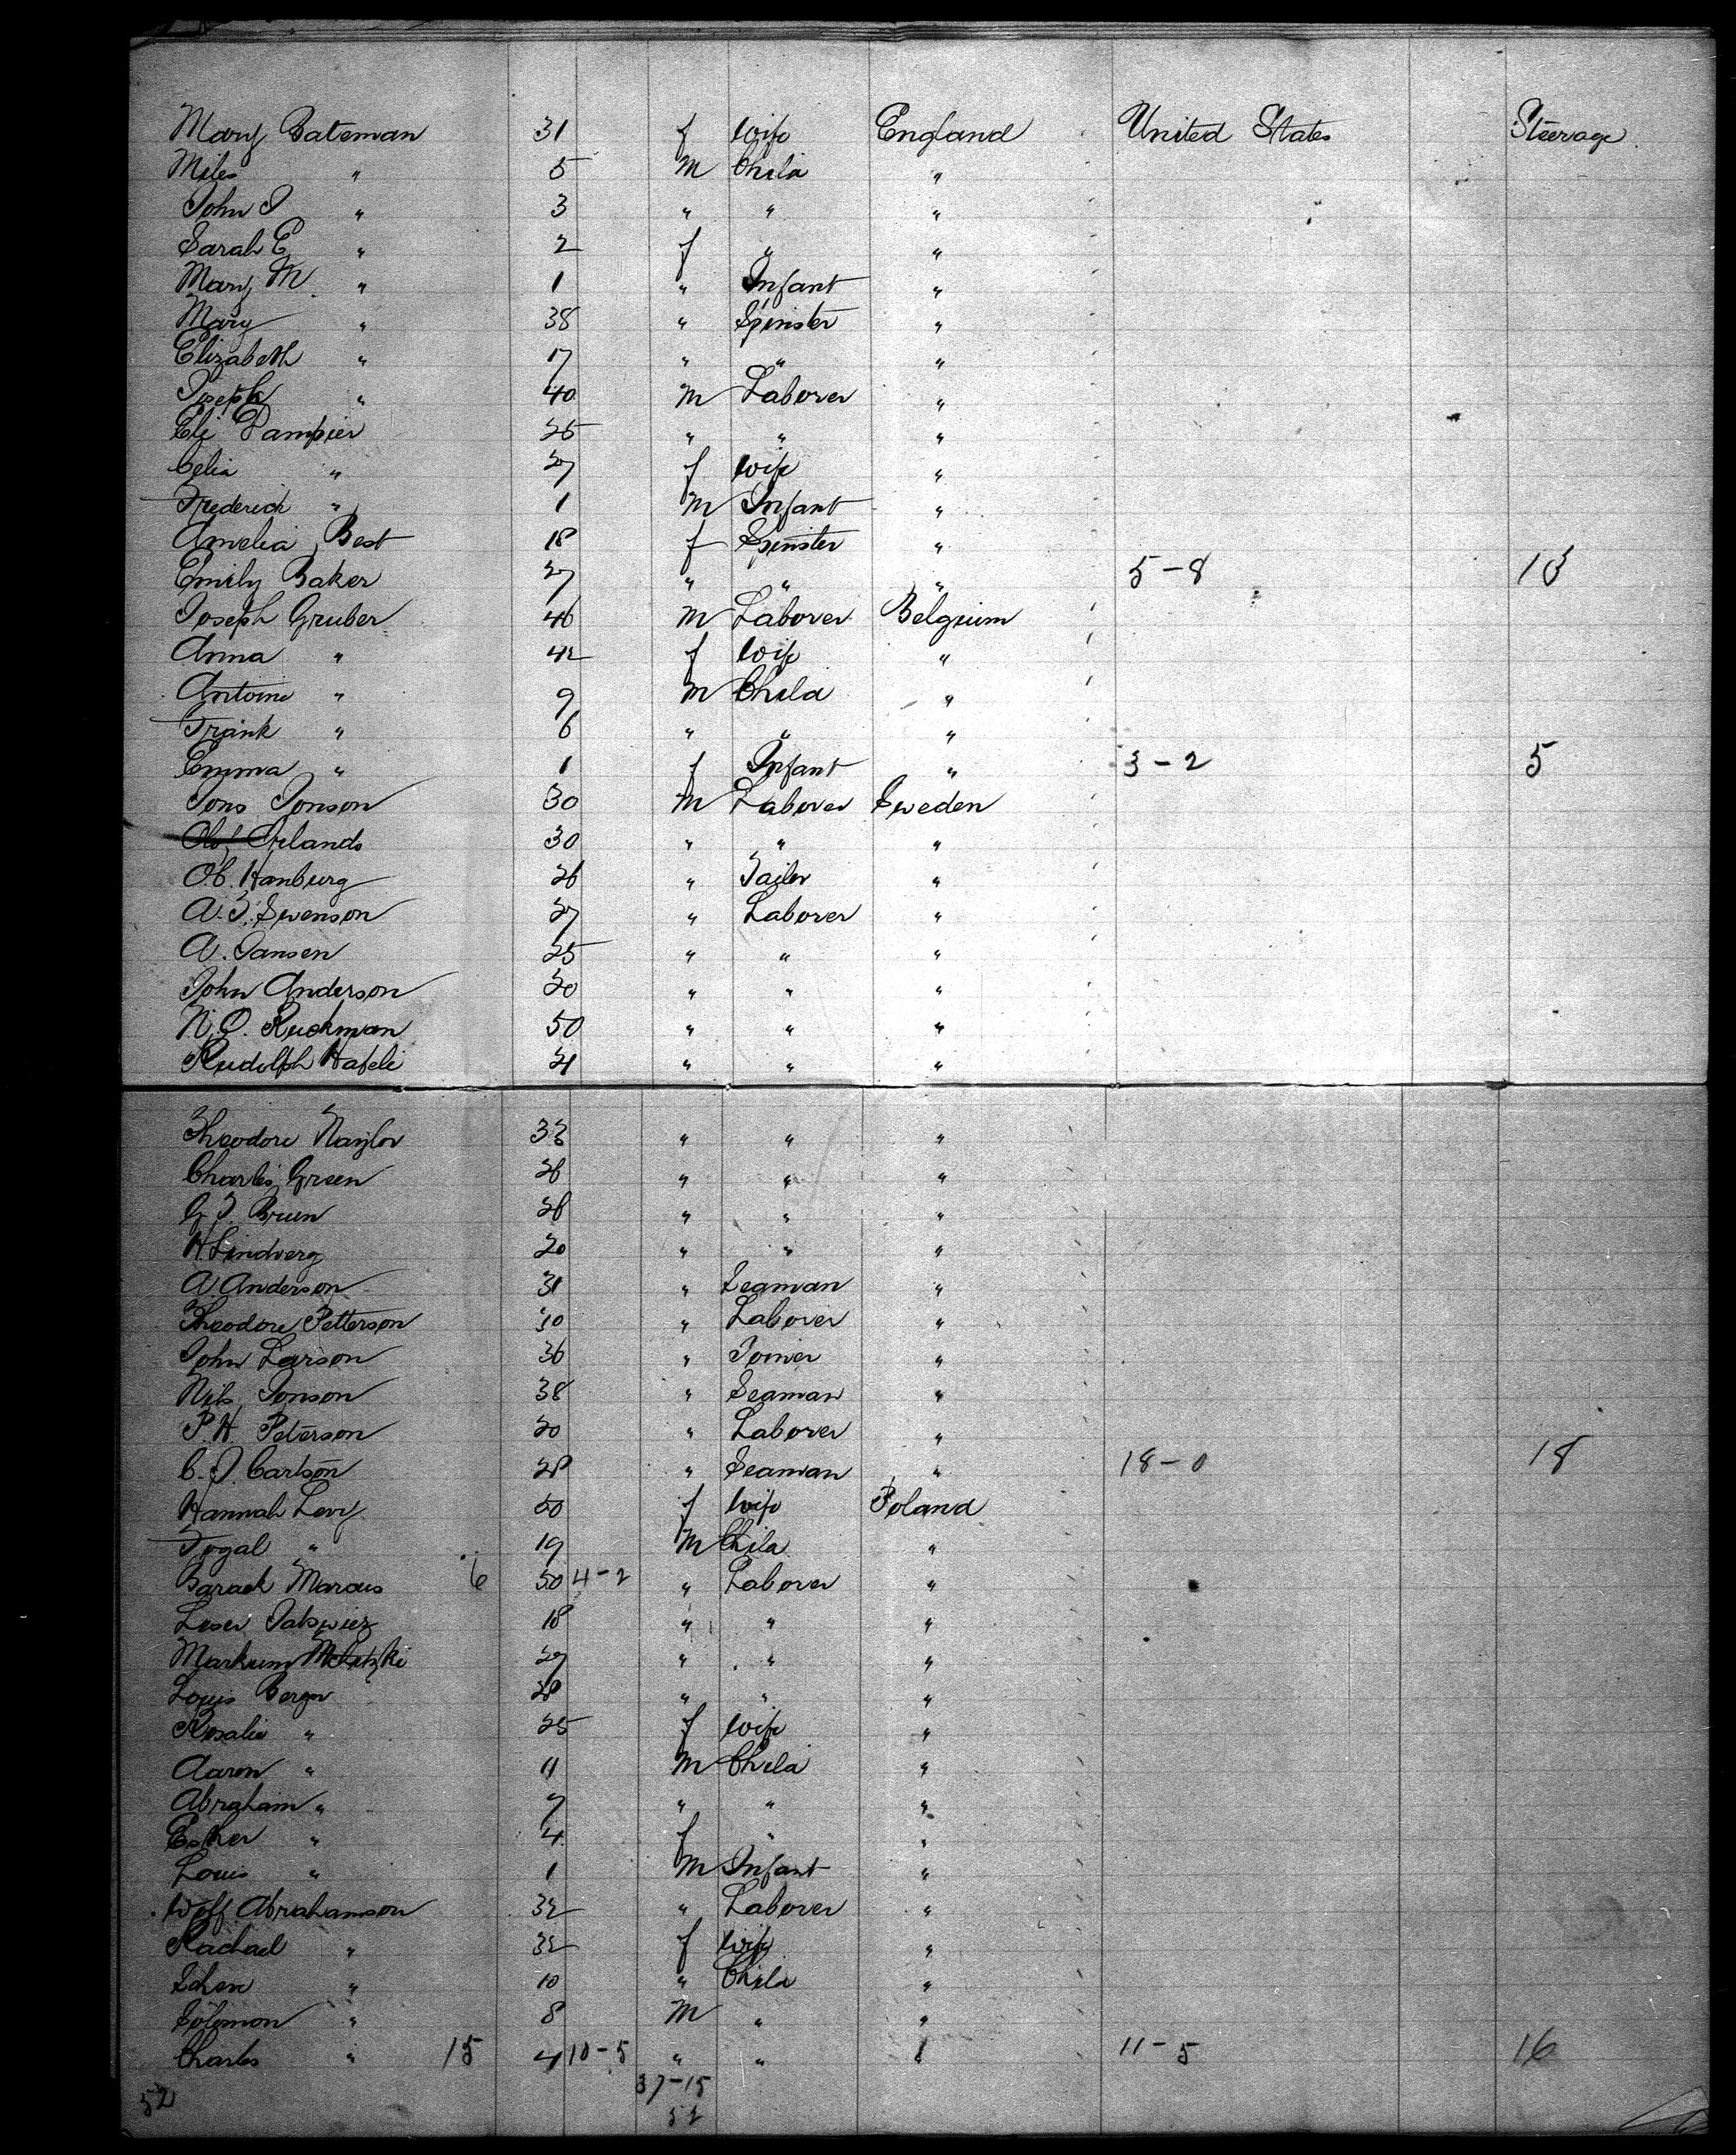 Mary Bateman 31 f Wife England United States Steerage
Miles " 5 M Child "
John J " 3 " " "
Sarah E " 2 f " "
Mary M " 1 " Infant "
Mary " 38 " Spinster "
Elizabeth " 17 " " "
Joseph " 40 M Laborer "
Eli Dampier 25 " " "
Celia " 27 f Wife "
Frederick " 1 M Infant "
Amelia Best 18 f Spinster "
Emily Baker 27 " " " 5-8 13
Joseph Gruber 46 M Laborer Belgium
Anna " 42 f Wife "
Antoine " 9 M Child "
Frank " 6 " " "
Emma " 1 f Infant " 3-2 5
Jons Jonson 30 M Laborer Sweden
Olof Orlands 30 " " "
O.C. Hanburg 26 " Tailor "
A.T. Swenson 27 " Laborer "
A. Jansen 25 " " "
John Anderson 20 " " "
N.O. Ruckman 50 " " "
Rudolph Hafeli 21 " " "
Theodore Naylor 33 " " "
Charles Green 26 " " "
G J. Bruen 26 " " "
H. Lindverg 20 " " "
A Anderson 31 " Seaman "
Theodore Petterson 30 " Laborer "
John Larson 36 " Joiner "
Nils Jonson 38 " Seaman "
P.H. Peterson 20 " Laborer "
C.J. Carlson 28 " Seaman " 18-0 18
Hannah Levy 50 f Wife Poland
Fogal " 19 M Child "
Barach Marcus 6 50 4-2 " Laborer "
Leser 18 " " "
Markum 27 " " "
Louis Berger 28 " " "
Rosalie " 25 f Wife "
Aaron " 11 M Child "
Abraham " 7 " " "
Esther " 4 f " "
Louis " 1 M Infant "
Wolf Abrahamson 32 " Laborer "
Rachael " 32 f Wife "
Schen " 10 " Child "
Solomon " 8 M " "
Charles " 15 4 10-5 " " " 11-5 16
52 37-15
52